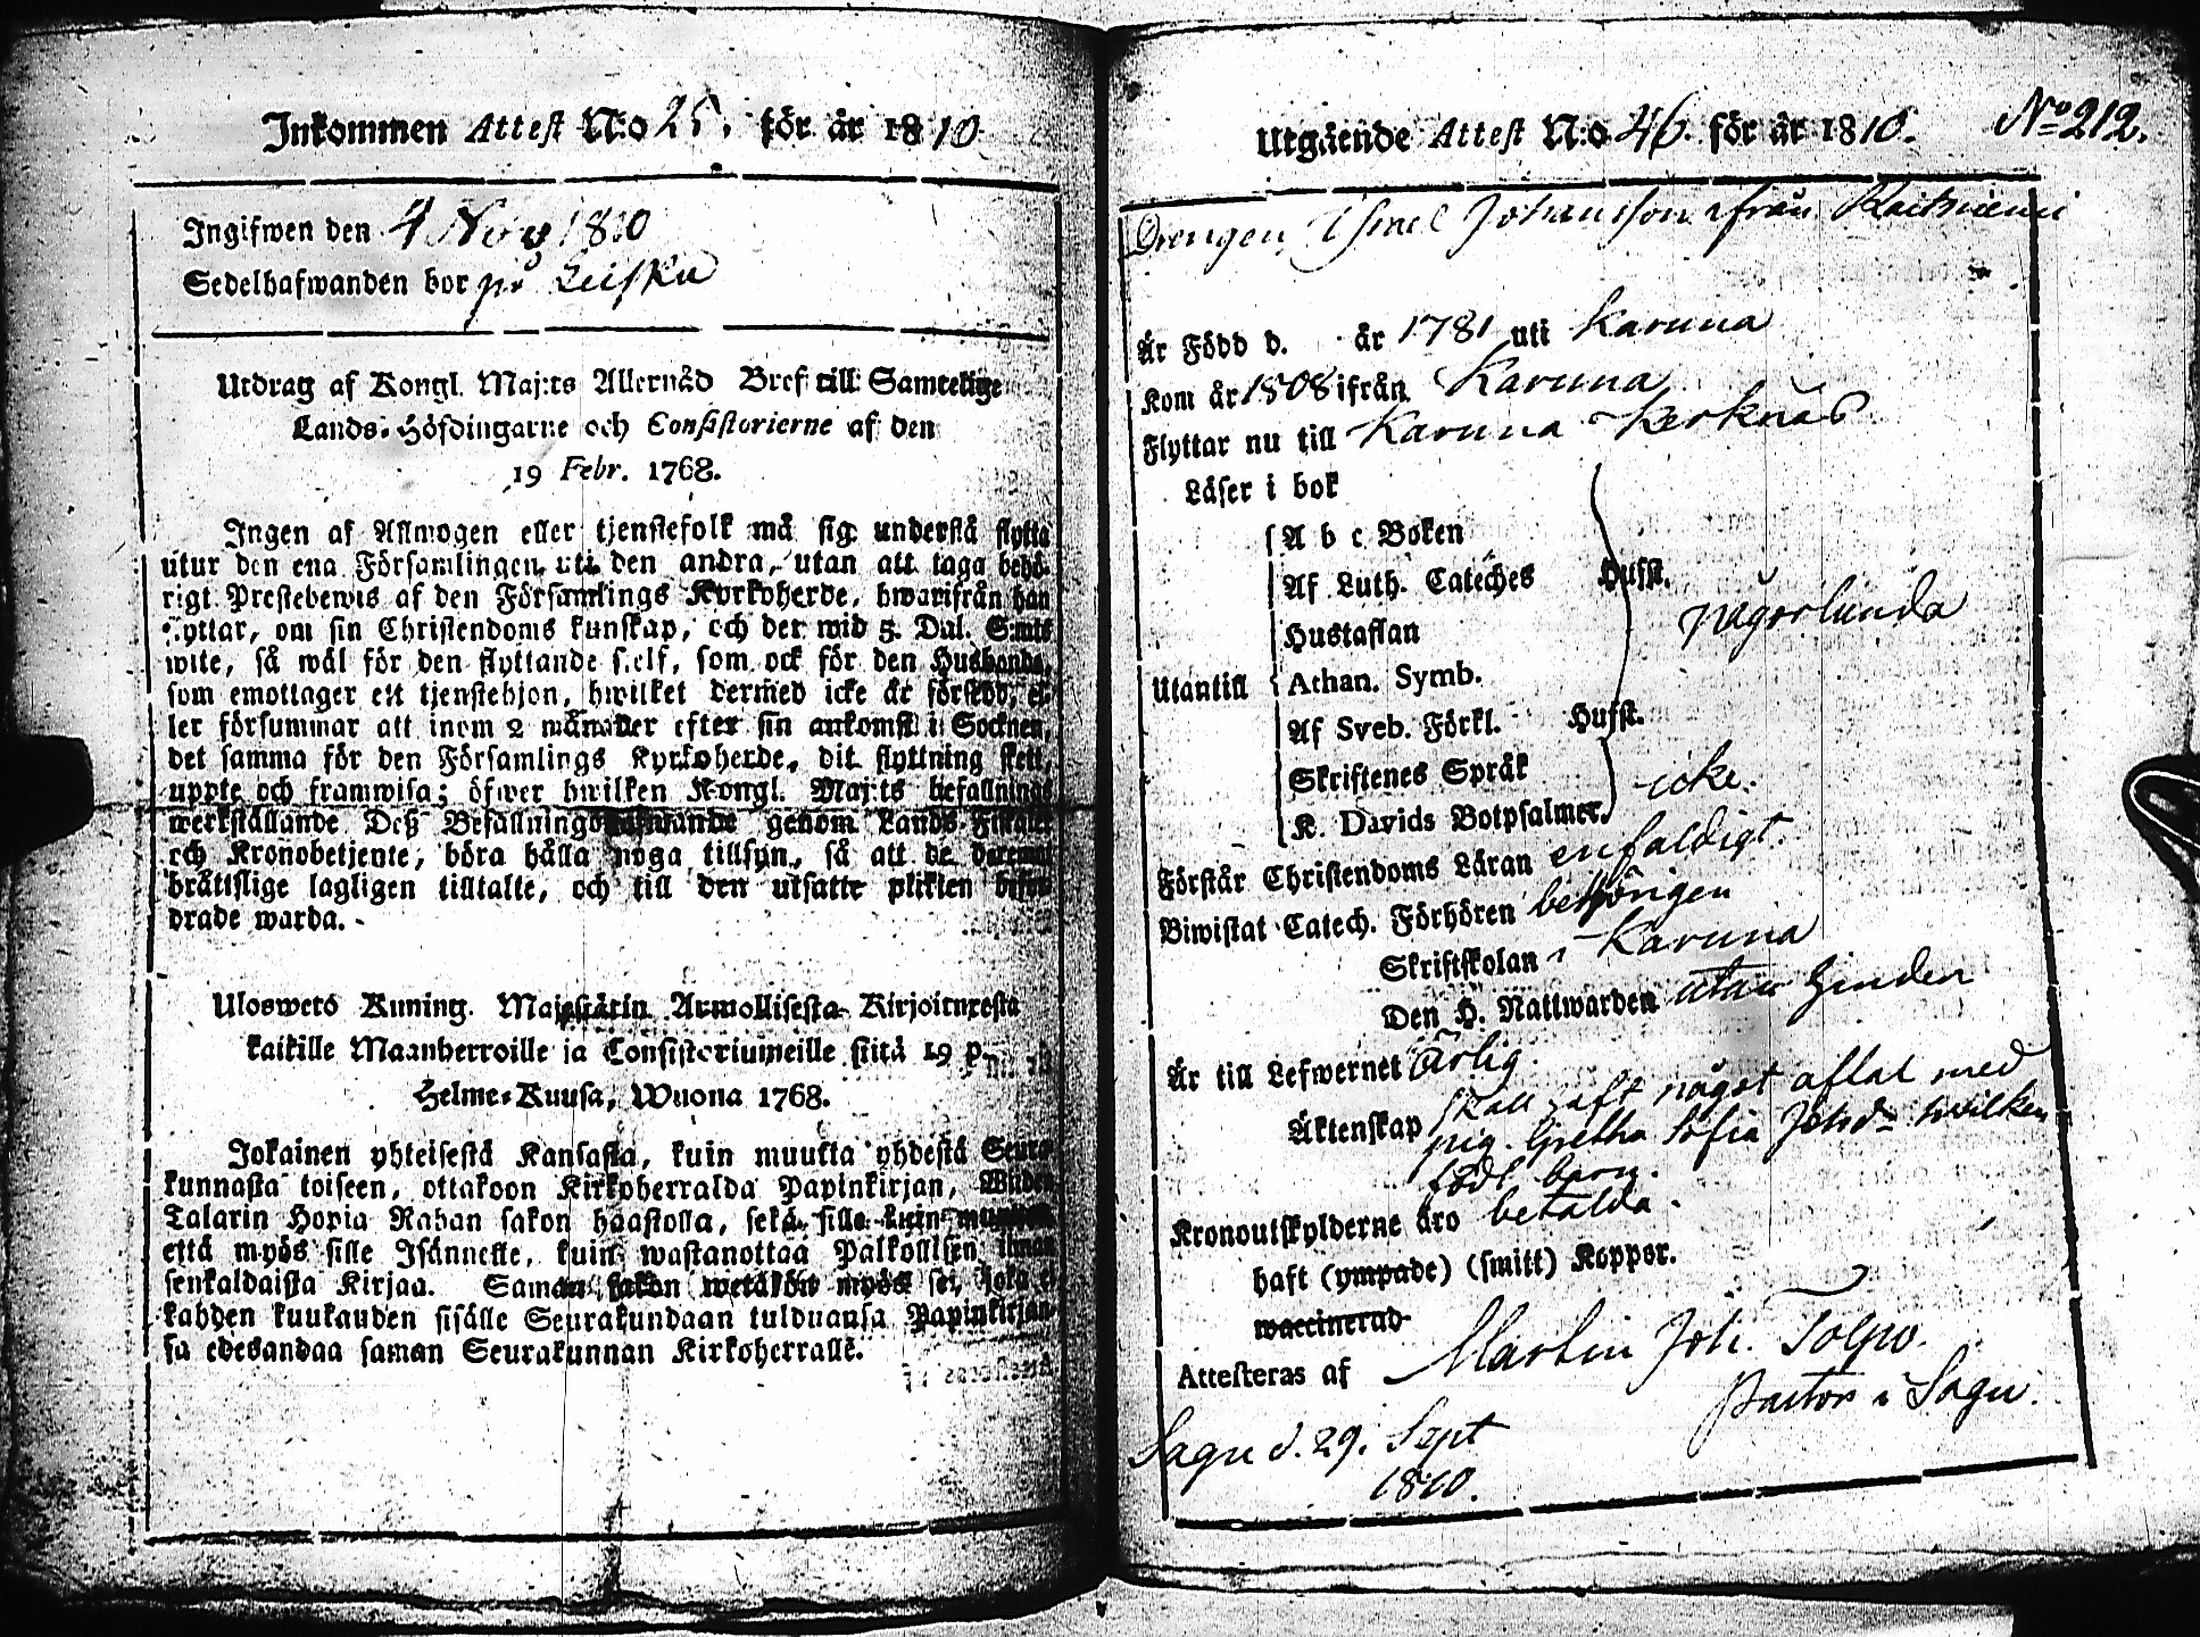 Inkommen Attest N:o 25. för år 1810
Ingifwen den 4 Nov 1810
Sedelhafwanden bor på Leipku
Utdrag af Kongl. Maj:ts Allernåd Bref till Samtelige
Lands-Höfdingarne och Consistorierne af den
19 Febr. 1768.
Ingen af Allmogen eller tjenstefolk må sig understå flytta
utur den ena Församlingen uti den andra, utan att taga behö-
rigt Prestebewis af den Församlings Kyrkoherde, hwarifrån han
flyttar, om sin Christendoms kunskap, och der wid 5. Dal. S:mts
wite, så wäl för den flyttande sielf, som ock för den Husbonde,
som emottager ett tjenstehjon, hwilket dermed icke är försedd, el-
ler försummar att inom 2 månader efter sin ankomst i Socknen,
det samma för den Församlings Kyrkoherde, dit flyttning skett,
uppte och framwisa; öfwer hwilken Kongl. Maj:ts befallnings
werkställande Deß Befallningshafwande genom Lands-Fiskaler
och Kronobetjente, böra hålla noga tillsyn, så att de deremot
bråttslige lagligen tilltalte, och till den utsatte plikten befor-
drade warda. -
Uloswetó Kuning. Majestätin Armollisesta Kirjoituxesta
kaikille Maanherroille ja Consistoriumeille siitä 19 p.
Helme-Kuusa, Wuona 1768.
Jokainen yhteisestä Kansasta, kuin muutta yhdestä Seura-
kunnasta toiseen, ottakoon Kirkoherralda Papinkirjan, Wiiden
Talarin Hopia Rahan sakon haastolla, sekä sille kuin muutta
että myös sille Isännelle, kuin wastanottaa Palkollisen ilman
senkaldaista Kirjaa. Saman sakon wetäkön myös se, joka ei
kahden kuukauden sisälle Seurakundaan tulduansa Papinkirjan-
sa edesandaa saman Seurakunnan Kirkoherralle.
Utgående Attest N:o 46. för år 1810. No 212.
Drengen Ismel Johansson ifrån
Är Född d. år 1781 uti Karuna
Kom år 1808 ifrån Karuna
Flyttar nu till Karuna Kerknäs
Läser i bok
A b c Boken
Af Luth. Cateches Hufst.
Hustaflan någorlunda
Utantill Athan. Symb.
Af Sveb. Förkl. Hufst.
Skriftenes Språk
K. Davids Botpsalmer. icke.
Förstår Christendoms Läran enfaldigt.
Biwistat Catech. Förhören behörigen
Skriftskolan i Karuna
Den H. Nattwarden utan hinder
Är till Lefwernet Ärlig.
Äktenskap skall haft något aflat med
pig. Gretha Sofia Johsdr hwilken
födt barn.
Kronoutskylderne äro betalda.
haft (ympade) (smitt) Koppor.
waccinerad
Attesteras af Martin Joh. Tolpo.
Pastor i Sagu.
Sagu d. 29. Sept
1810.